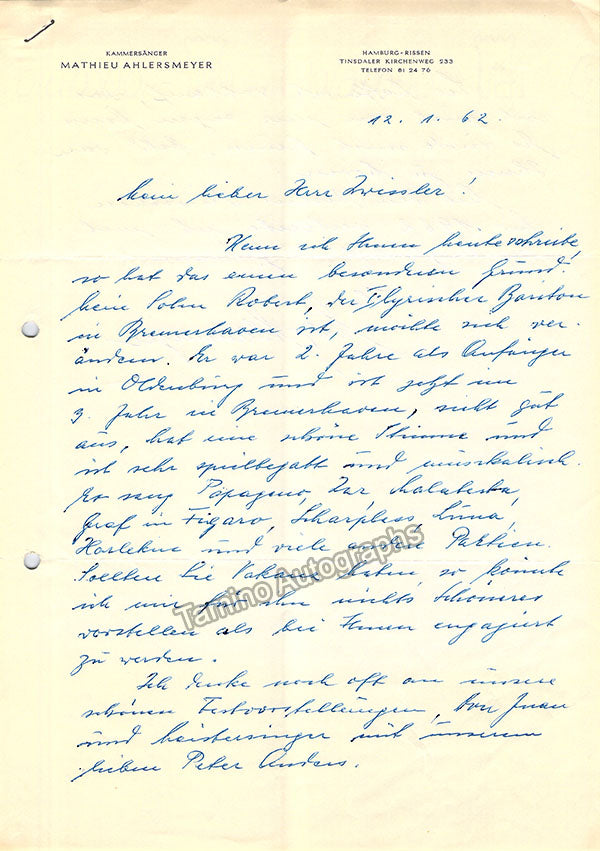 KAMMERSÄNGER
MATHIEU AHLERSMEYER
HAMBURG-RISSEN
TINSDALER KIRCHENWEG 233
TELEFON 81 24 76
12. 1. 62.
Mein lieber Herr Zwissler!
Wenn ich Ihnen heute schreibe,
so hat das einen besonderen Grund.
Mein Sohn Robert, der Lyrischer Bariton
in Bremerhaven ist, möchte sich ver-
ändern. Er war 2. Jahre als Anfänger
in Oldenburg und ist jetzt im
3. Jahr in Bremerhaven, sieht gut
aus, hat eine schöne Stimme und
ist sehr spielbegabt und musikalisch.
Er sang Papageno, Zar, Malatesta,
Graf in Figaro, Scharpless, Luna,
Harlekin und viele andere Partien.
Sollten Sie Vakanz haben, so könnte
ich mir für ihn nichts Schöneres
vorstellen als bei Ihnen engagiert
zu werden.
Ich denke noch oft an unsere
schönen Festvorstellungen, Don Juan
und Meistersinger mit unserem
lieben Peter Anders.
Tamino Autographs